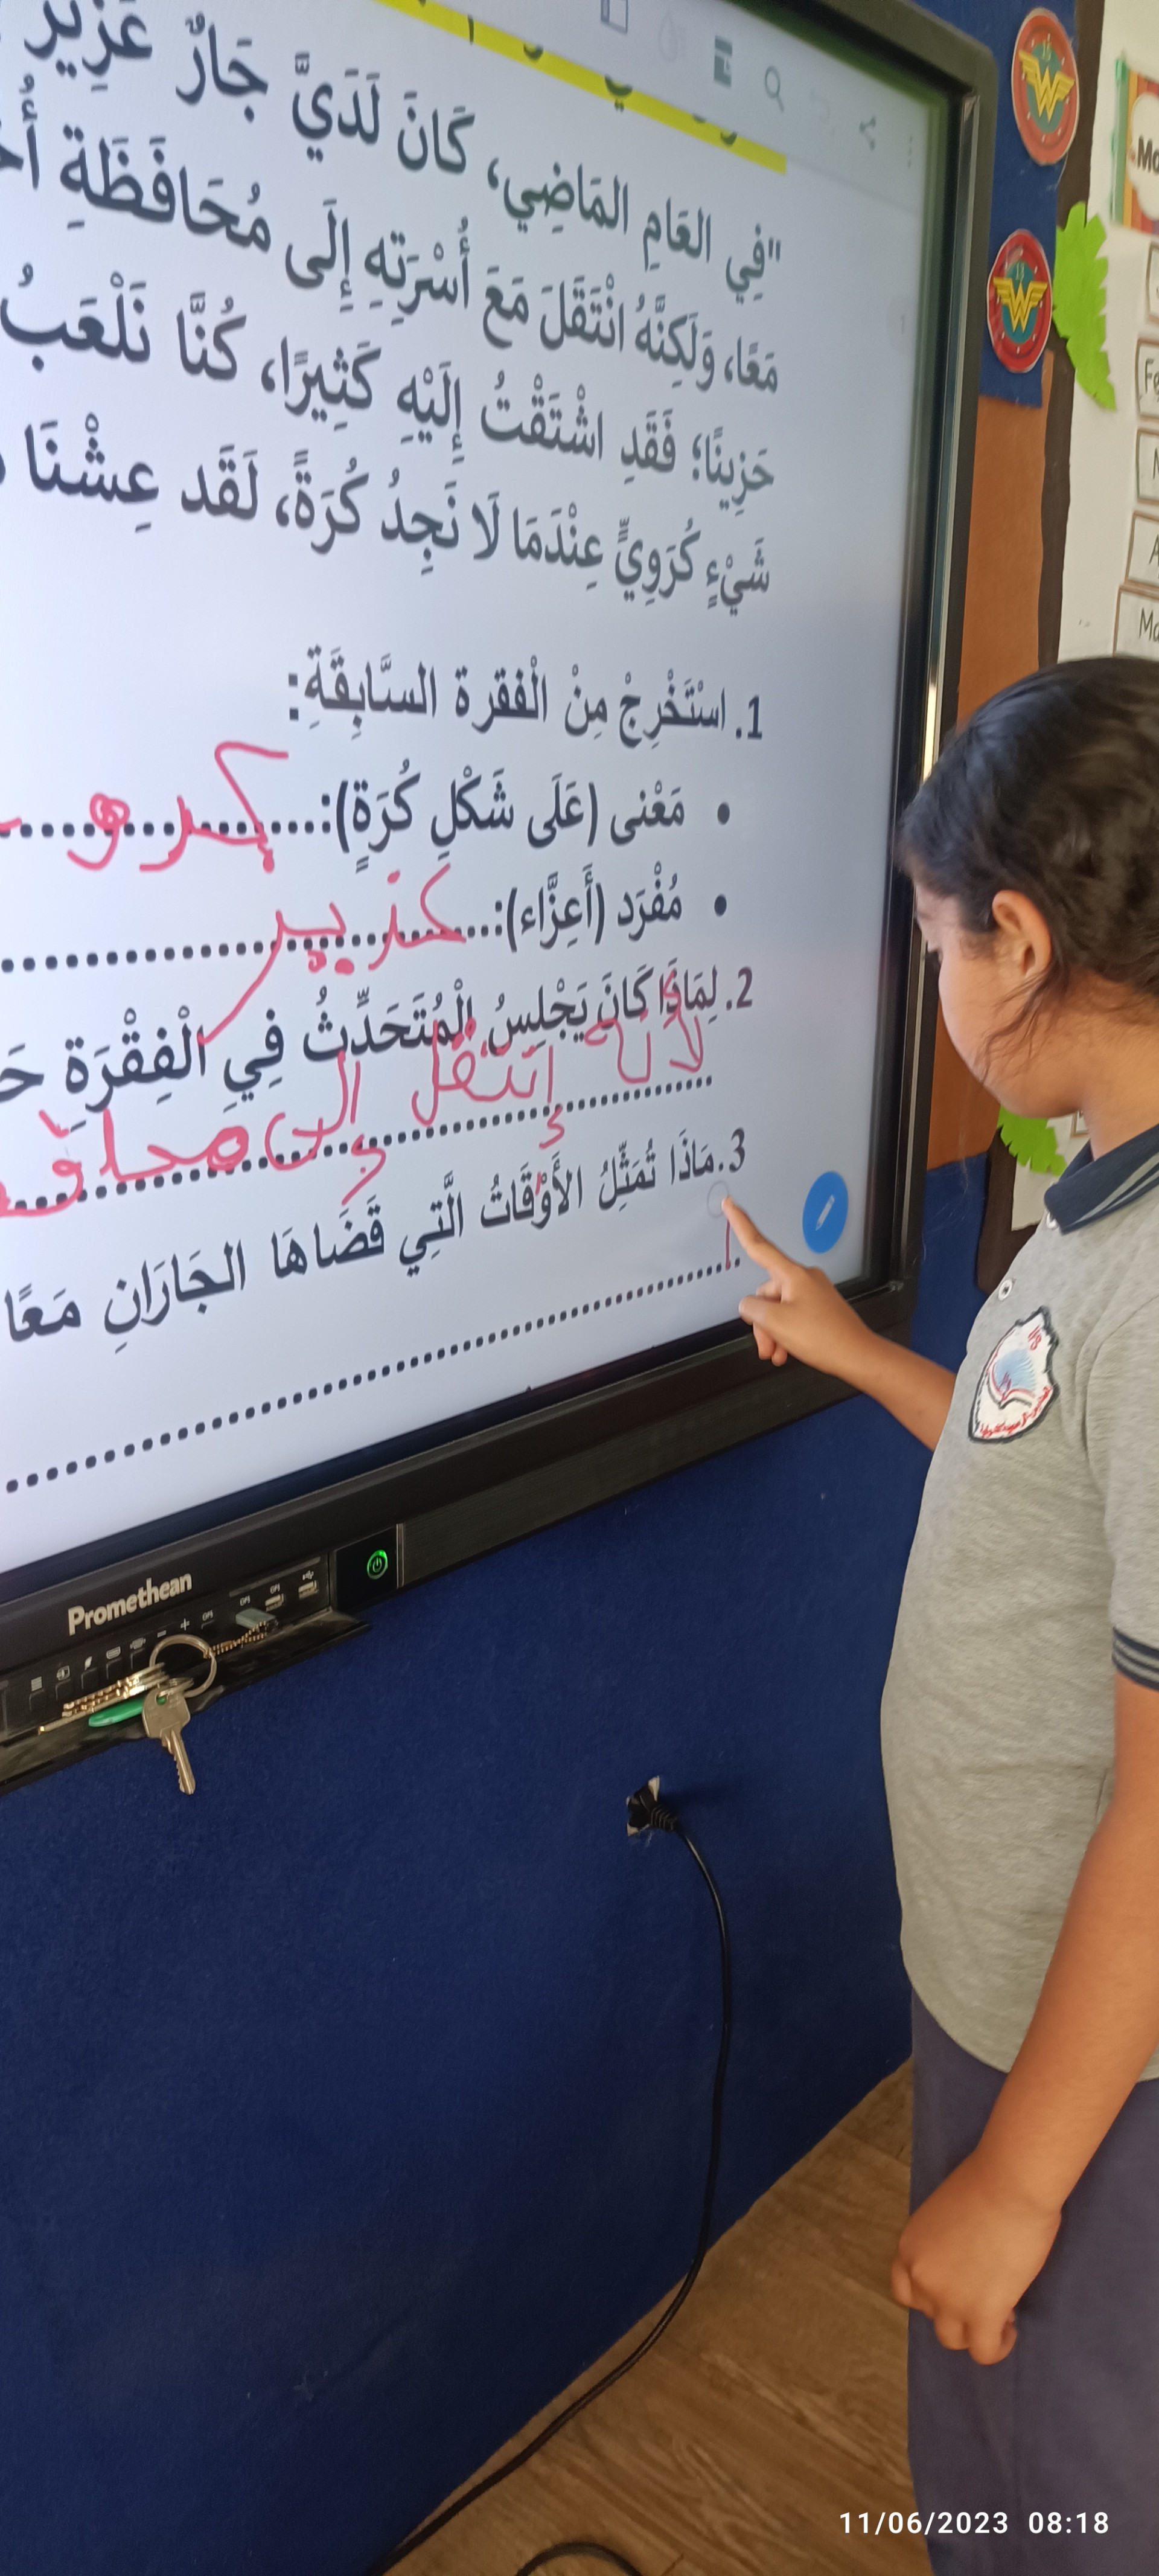 "فِي العَامِ المَاضِي، كَانَ لَدَيَّ جَارٌ عَزِيزٌ
مَعًا، وَلَكِنَّهُ انْتَقَلَ مَعَ أُسْرَتِهِ إِلَى مُحَافَظَةِ
حَزِينًا؛ فَقَدِ اشْتَقْتُ إِلَيْهِ كَثِيرًا، كُنَّا نَلْعَبُ
شَيْءٍ كُرَوِيٍّ عِنْدَمَا لَا نَجِدُ كُرَةً، لَقَد عِشْنَا
1. اسْتَخْرِجْ مِنْ الْفقرة السَّابِقَةِ:
• مَعْنى (عَلَى شَكْلِ كُرَةٍ):
• مُفْرَد (أَعِزَّاء):
2. لِمَاذَا كَانَ يَجْلِسُ الْمُتَحَدِّثُ فِي الْفِقْرَةِ
لأنه إنتقل إلى
3. مَاذَا تُمَثِّلُ الأَوْقَاتُ الَّتِي قَضَاهَا الجَارَانِ مَعًا
Promethean
11/06/2023 08:18